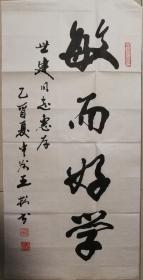 敏而好学
世建同志惠存
乙酉夏中浣王松书